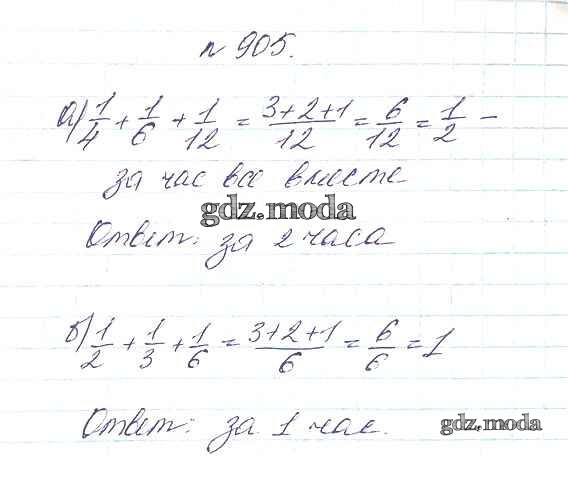 п 905.
а) 1/4 + 1/6 + 1/12 = 3+2+1/12 = 6/12 = 1/2 –
за час все вместе
gdz.moda
Ответ: за 2 часа
б) 1/2 + 1/3 + 1/6 = 3+2+1/6 = 6/6 = 1
Ответ: за 1 час.
gdz.moda